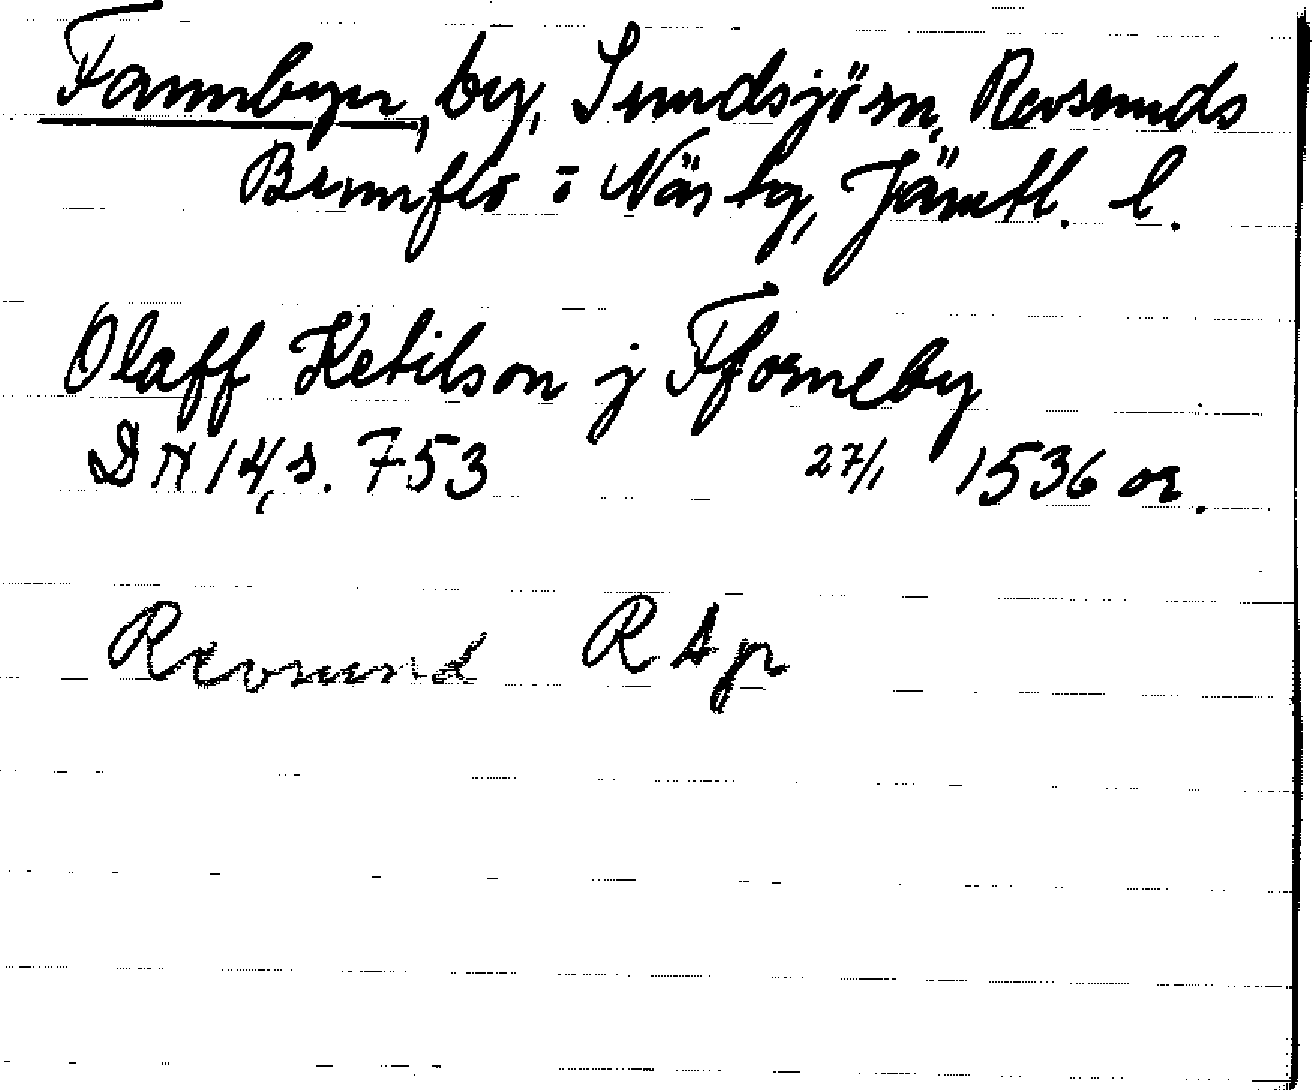 Fannbyn, by, Sundsjö sn, Revsunds
Brunflo o Näs tg, Jämtl. l.
Olaff Ketilson j Fforneby
DN 14, s. 753 27/1 1536 or.
Revsund R Ap